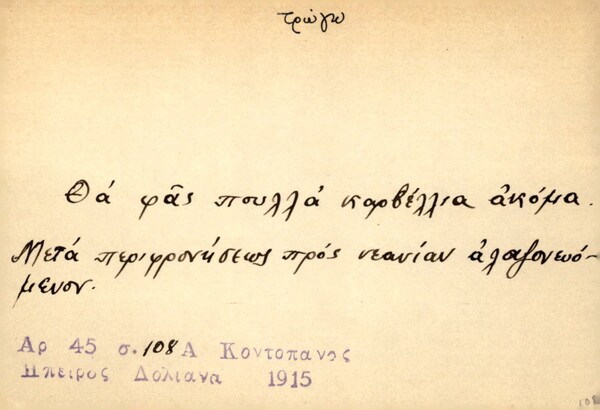 τρώγω
Θά φᾶς πουλλά καρβέλλια ἀκόμα.
Μετά περιφρονήσεως πρός νεανίαν ἀλαζονευό-
μενον.
Αρ 45 σ. 108 Α Κοντοπανος
Ηπειρος Δολιανα 1915
108